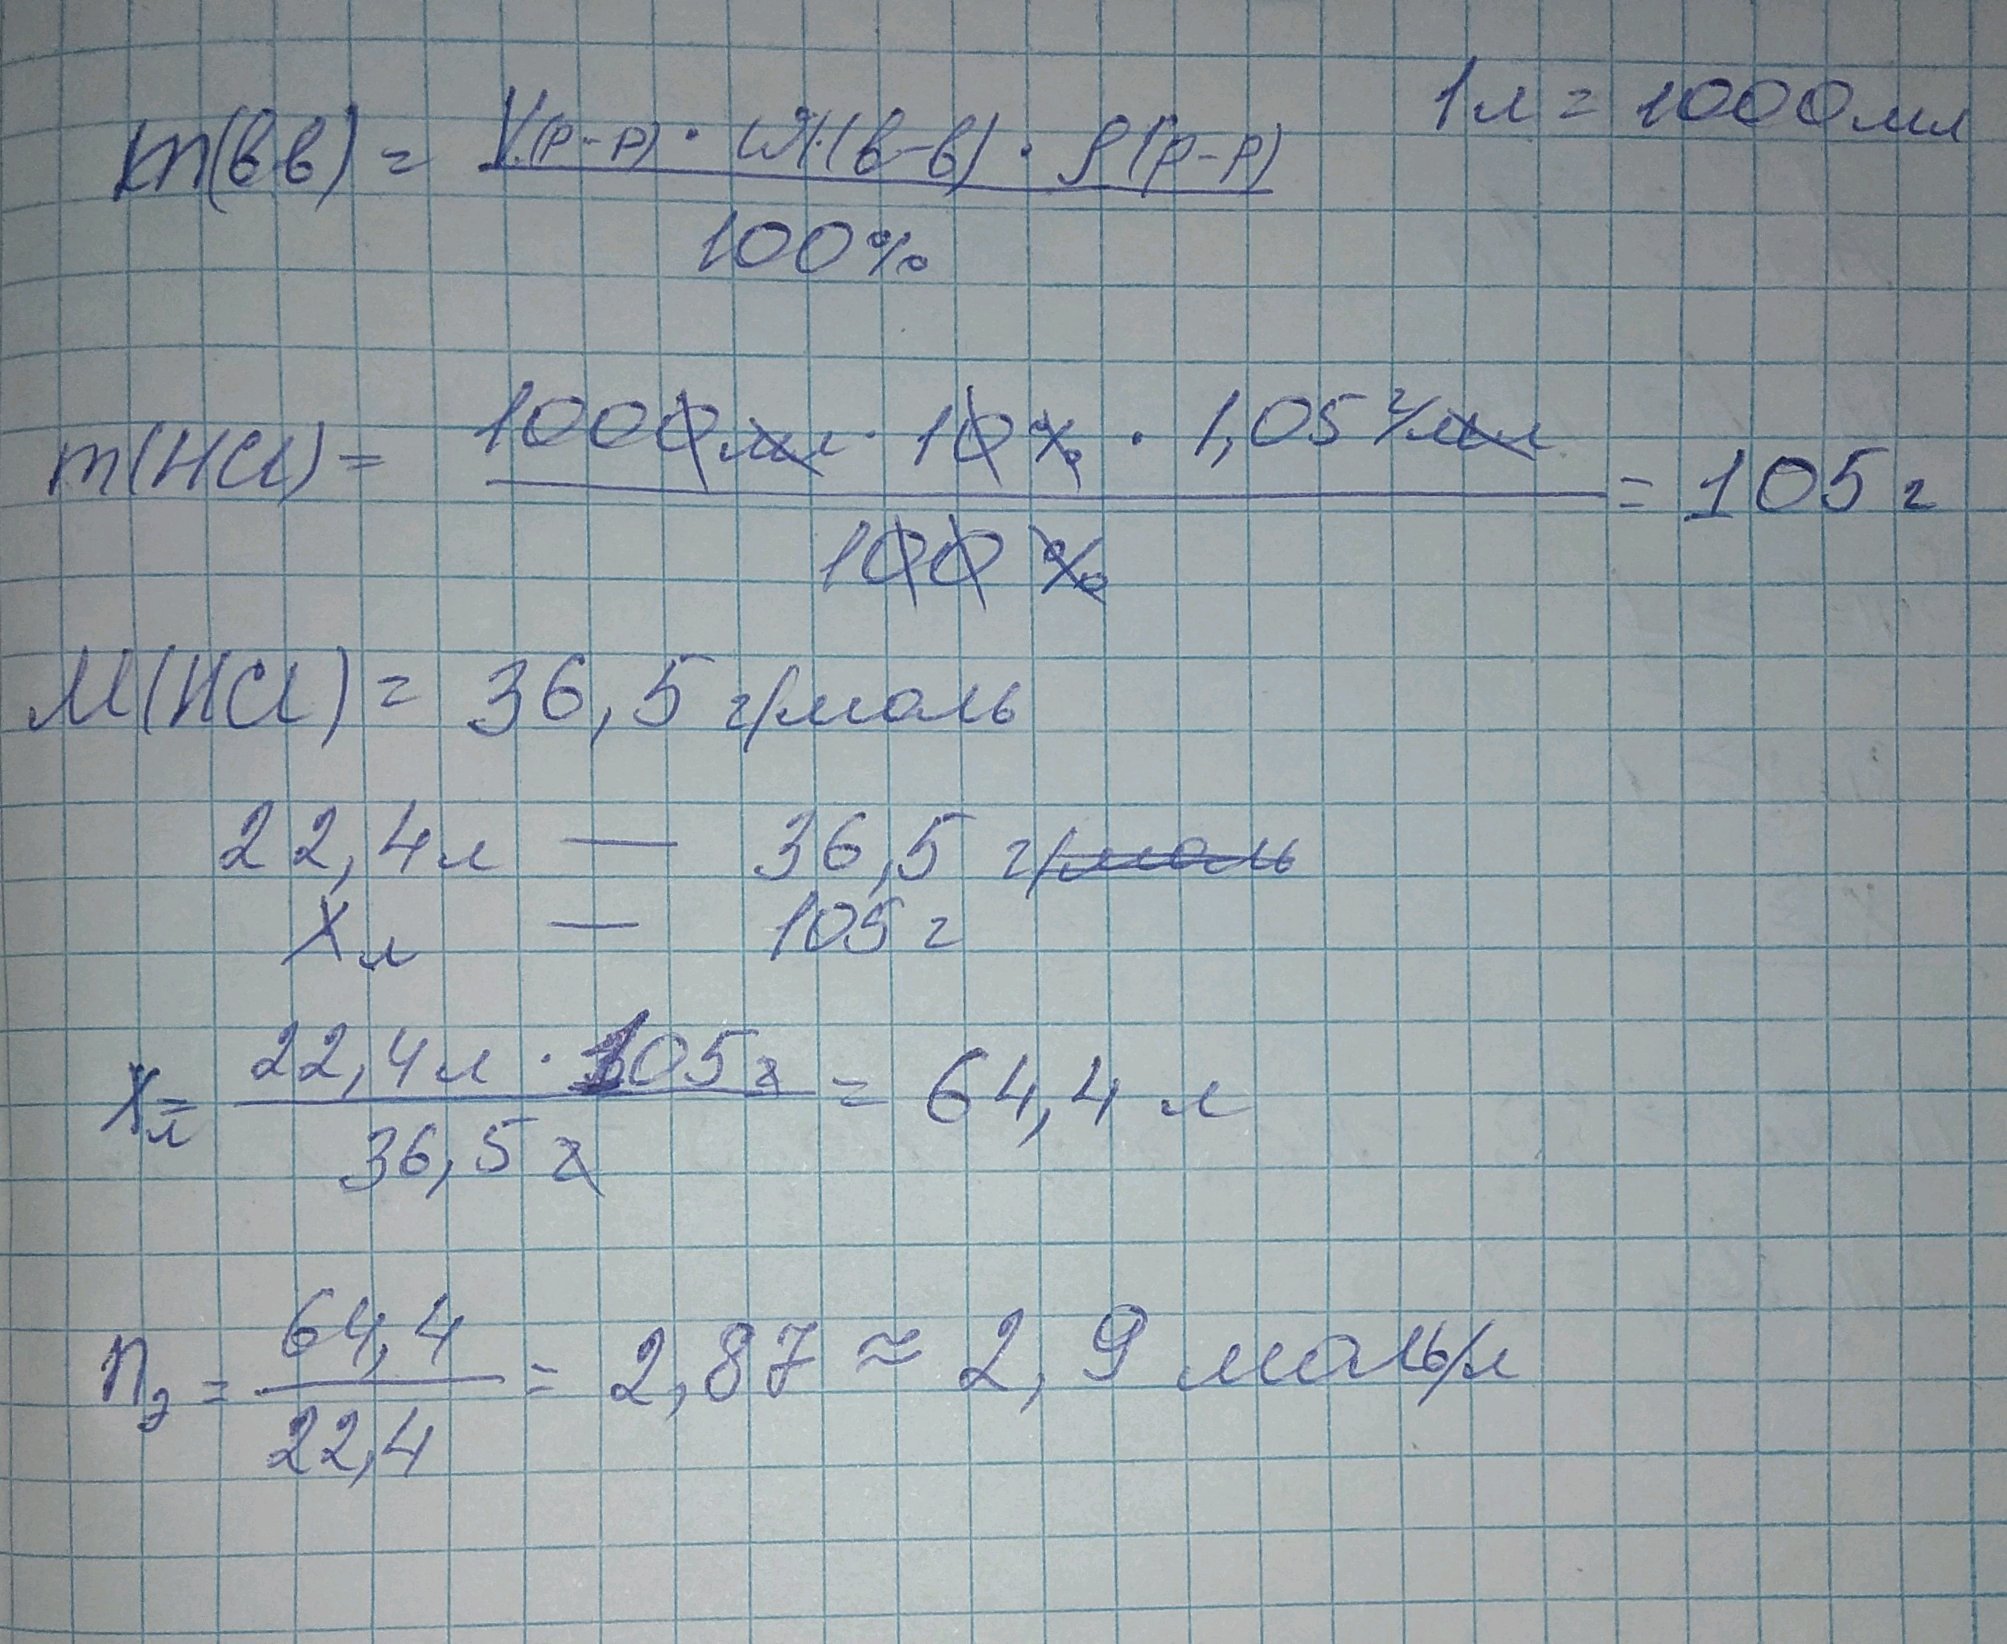 m(вв) = V(р-р) · W(в-в) · ρ(р-р) / 100% 1л = 1000мл
m(HCl) = 1000мл · 10% · 1,05г/мл / 100% = 105г
M(HCl) = 36,5 г/моль
22,4л — 36,5 г/моль
Xл — 105г
Xл = 22,4л · 105г / 36,5г = 64,4 л
n₂ = 64,4 / 22,4 = 2,87 ≈ 2,9 моль/л